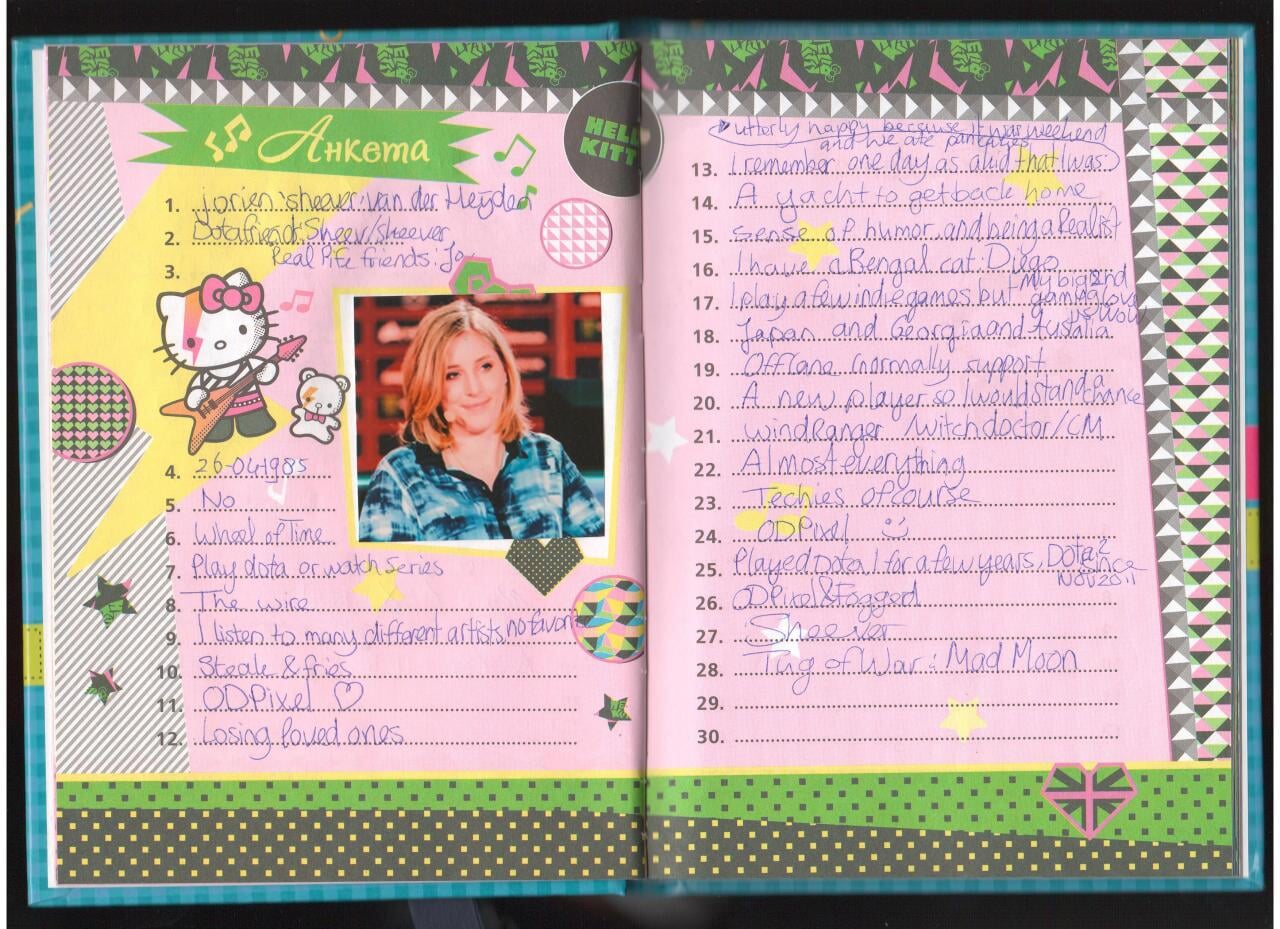 Анкета
HELLO KITT
1. jorien 'sheever' van der Heijden
2. Dotafriend: Sheev/Sheever
Real life friends: Jo
3.
4. 26-04-1985
5. No
6. Wheel of Time
7. Play dota or watch series
8. The wire
9. I listen to many different artists, no favorite
10. Steak & fries
11. ODPixel ♡
12. Losing loved ones
utterly happy because it was weekend
and we ate pancakes
13. I remember one day as a kid that I was
14. A yacht to get back home
15. sense of humor and being a Realist
16. I have a Bengal cat: Diego
17. I play a few indie games but my big 2nd
gaming love
is WoW
18. Japan and Georgia and Australia
19. Offlane normally support
20. A new player so I would stand a chance
21. WindRanger / witchdoctor / CM
22. Almost everything
23. Techies of course
24. ODPixel :)
25. Played Dota 1 for a few years, Dota2
since
Nov 2011
26. ODPixel & Fogged
27. Sheever
28. Tug of War: Mad Moon
29.
30.